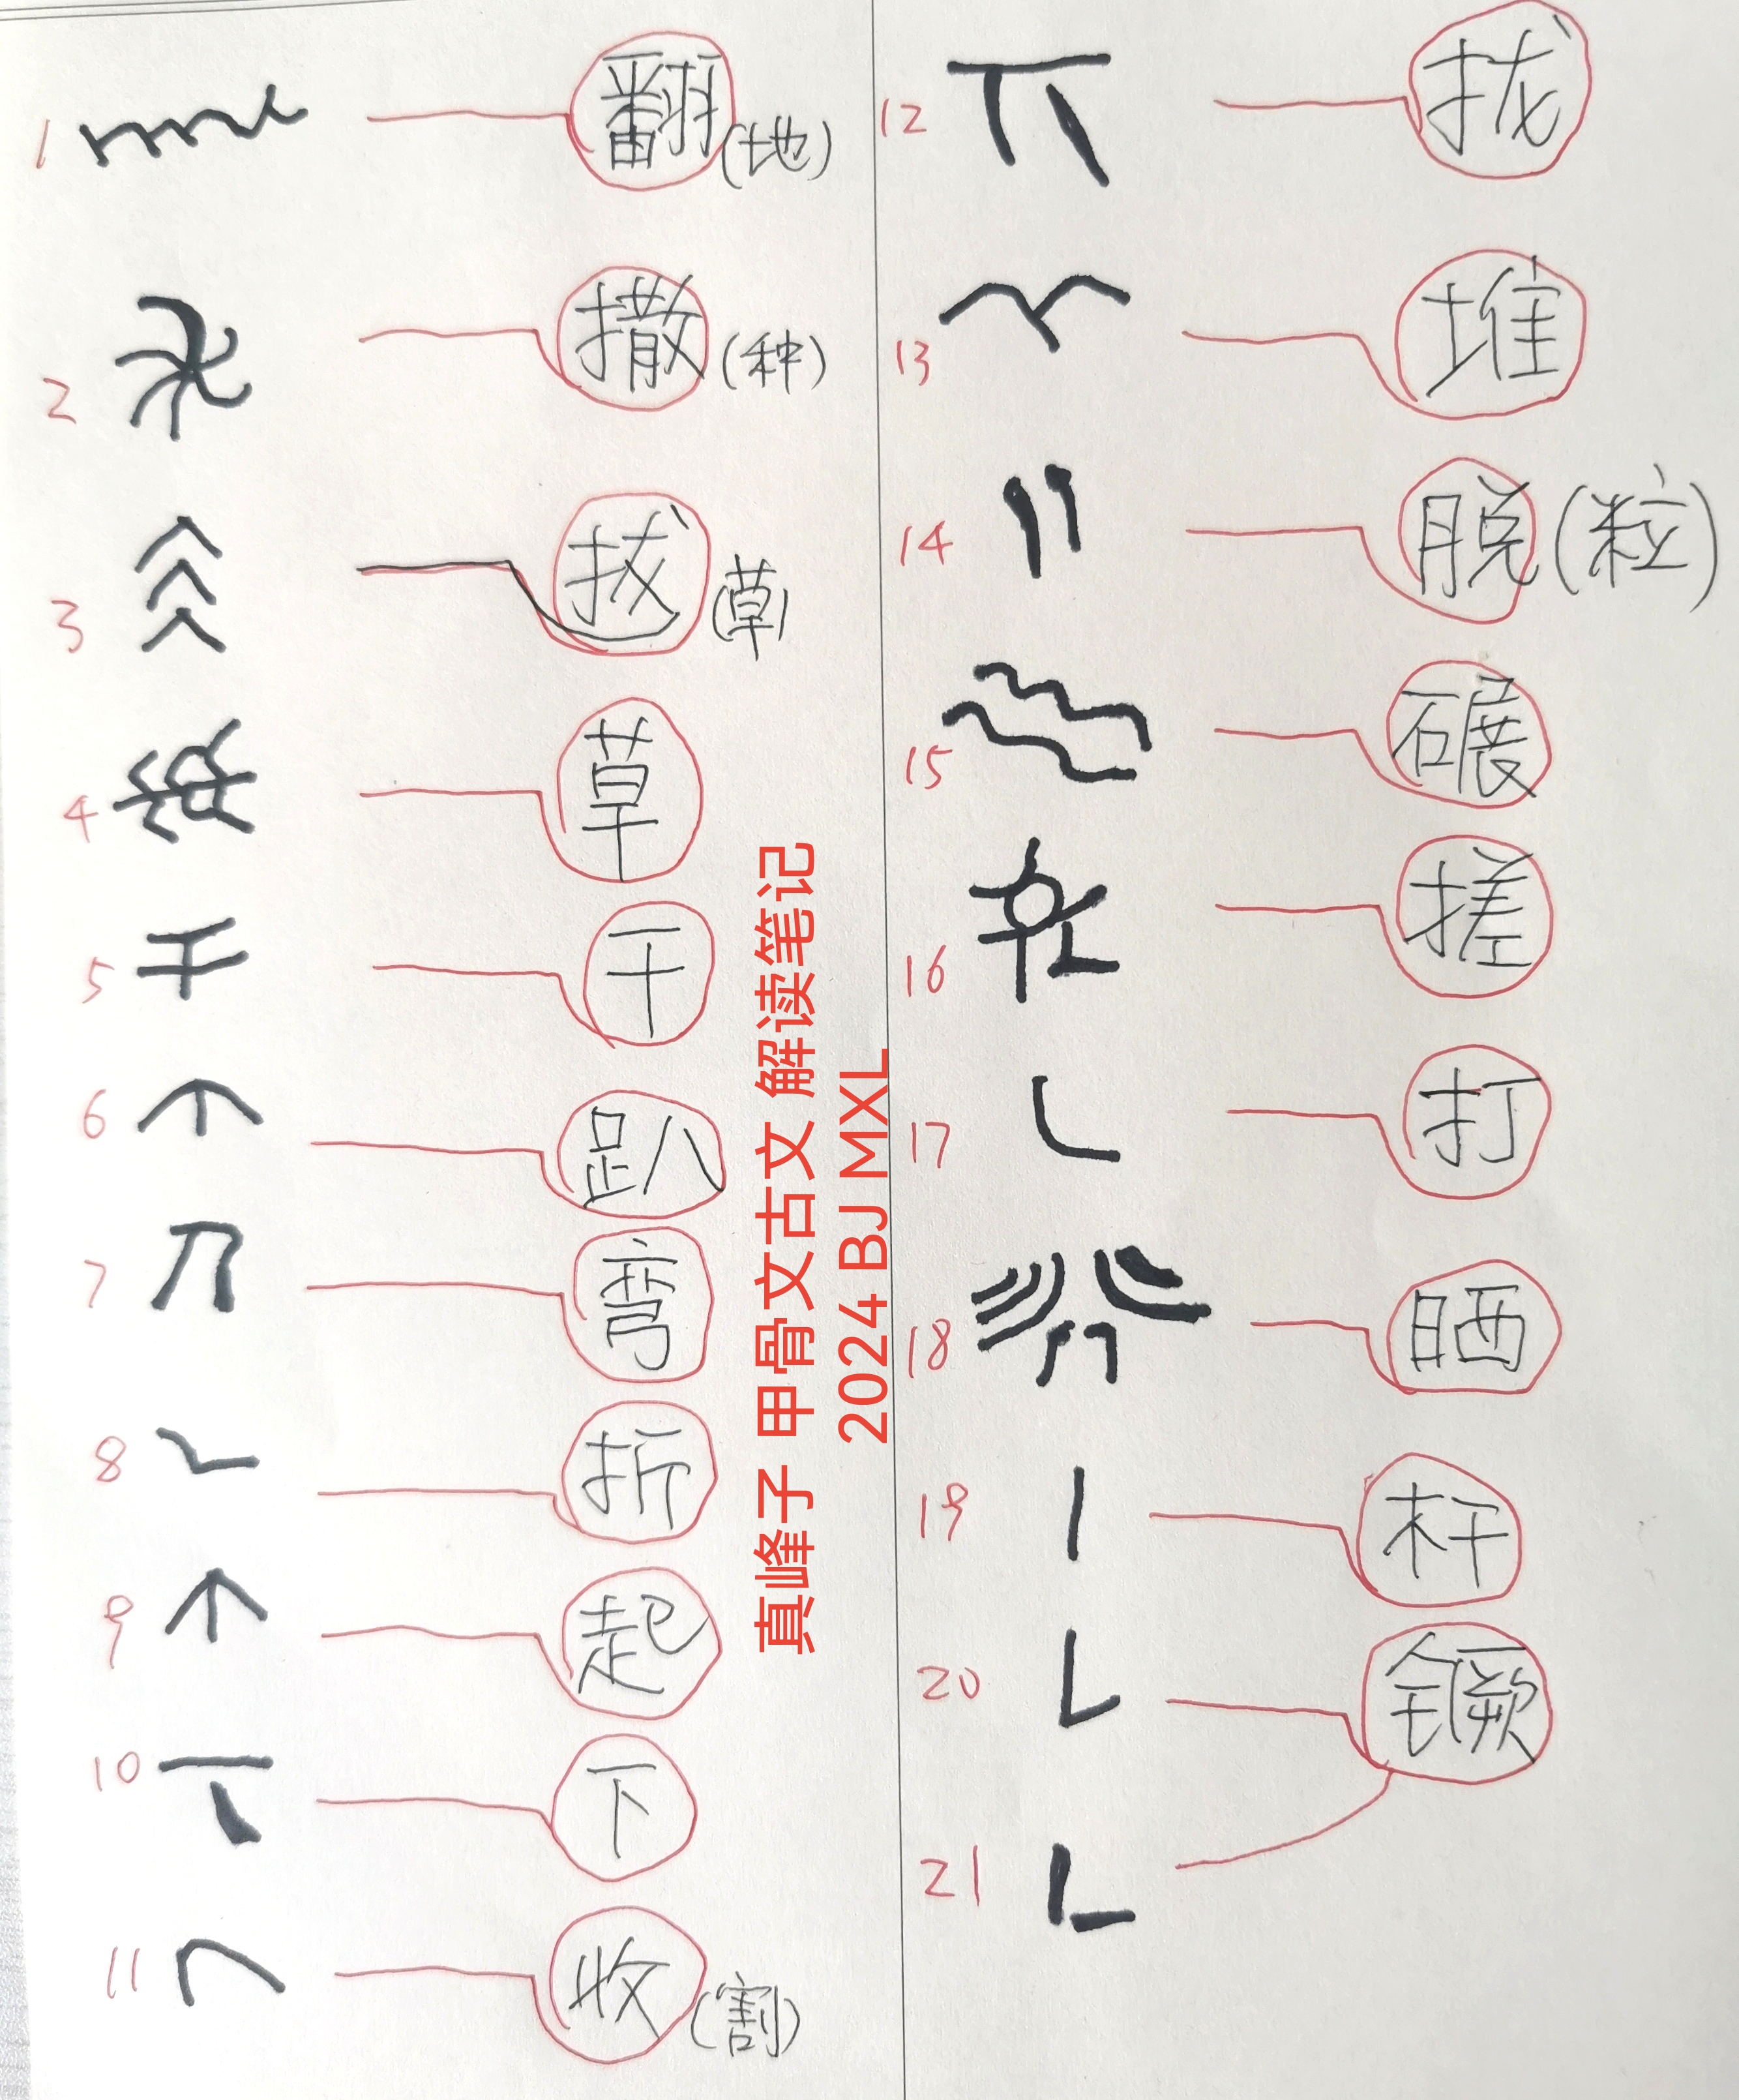 1 翻(地)
2 撒(种)
3 拔(草)
4 草
5 干
6 趴
7 弯
8 折
9 起
10 下
11 收(割)
12 拢
13 堆
14 脱(粒)
15 碾
16 搓
17 打
18 晒
19 杆
20 镢
21
真峰子 甲骨文古文 解读笔记
2024 BJ MXL